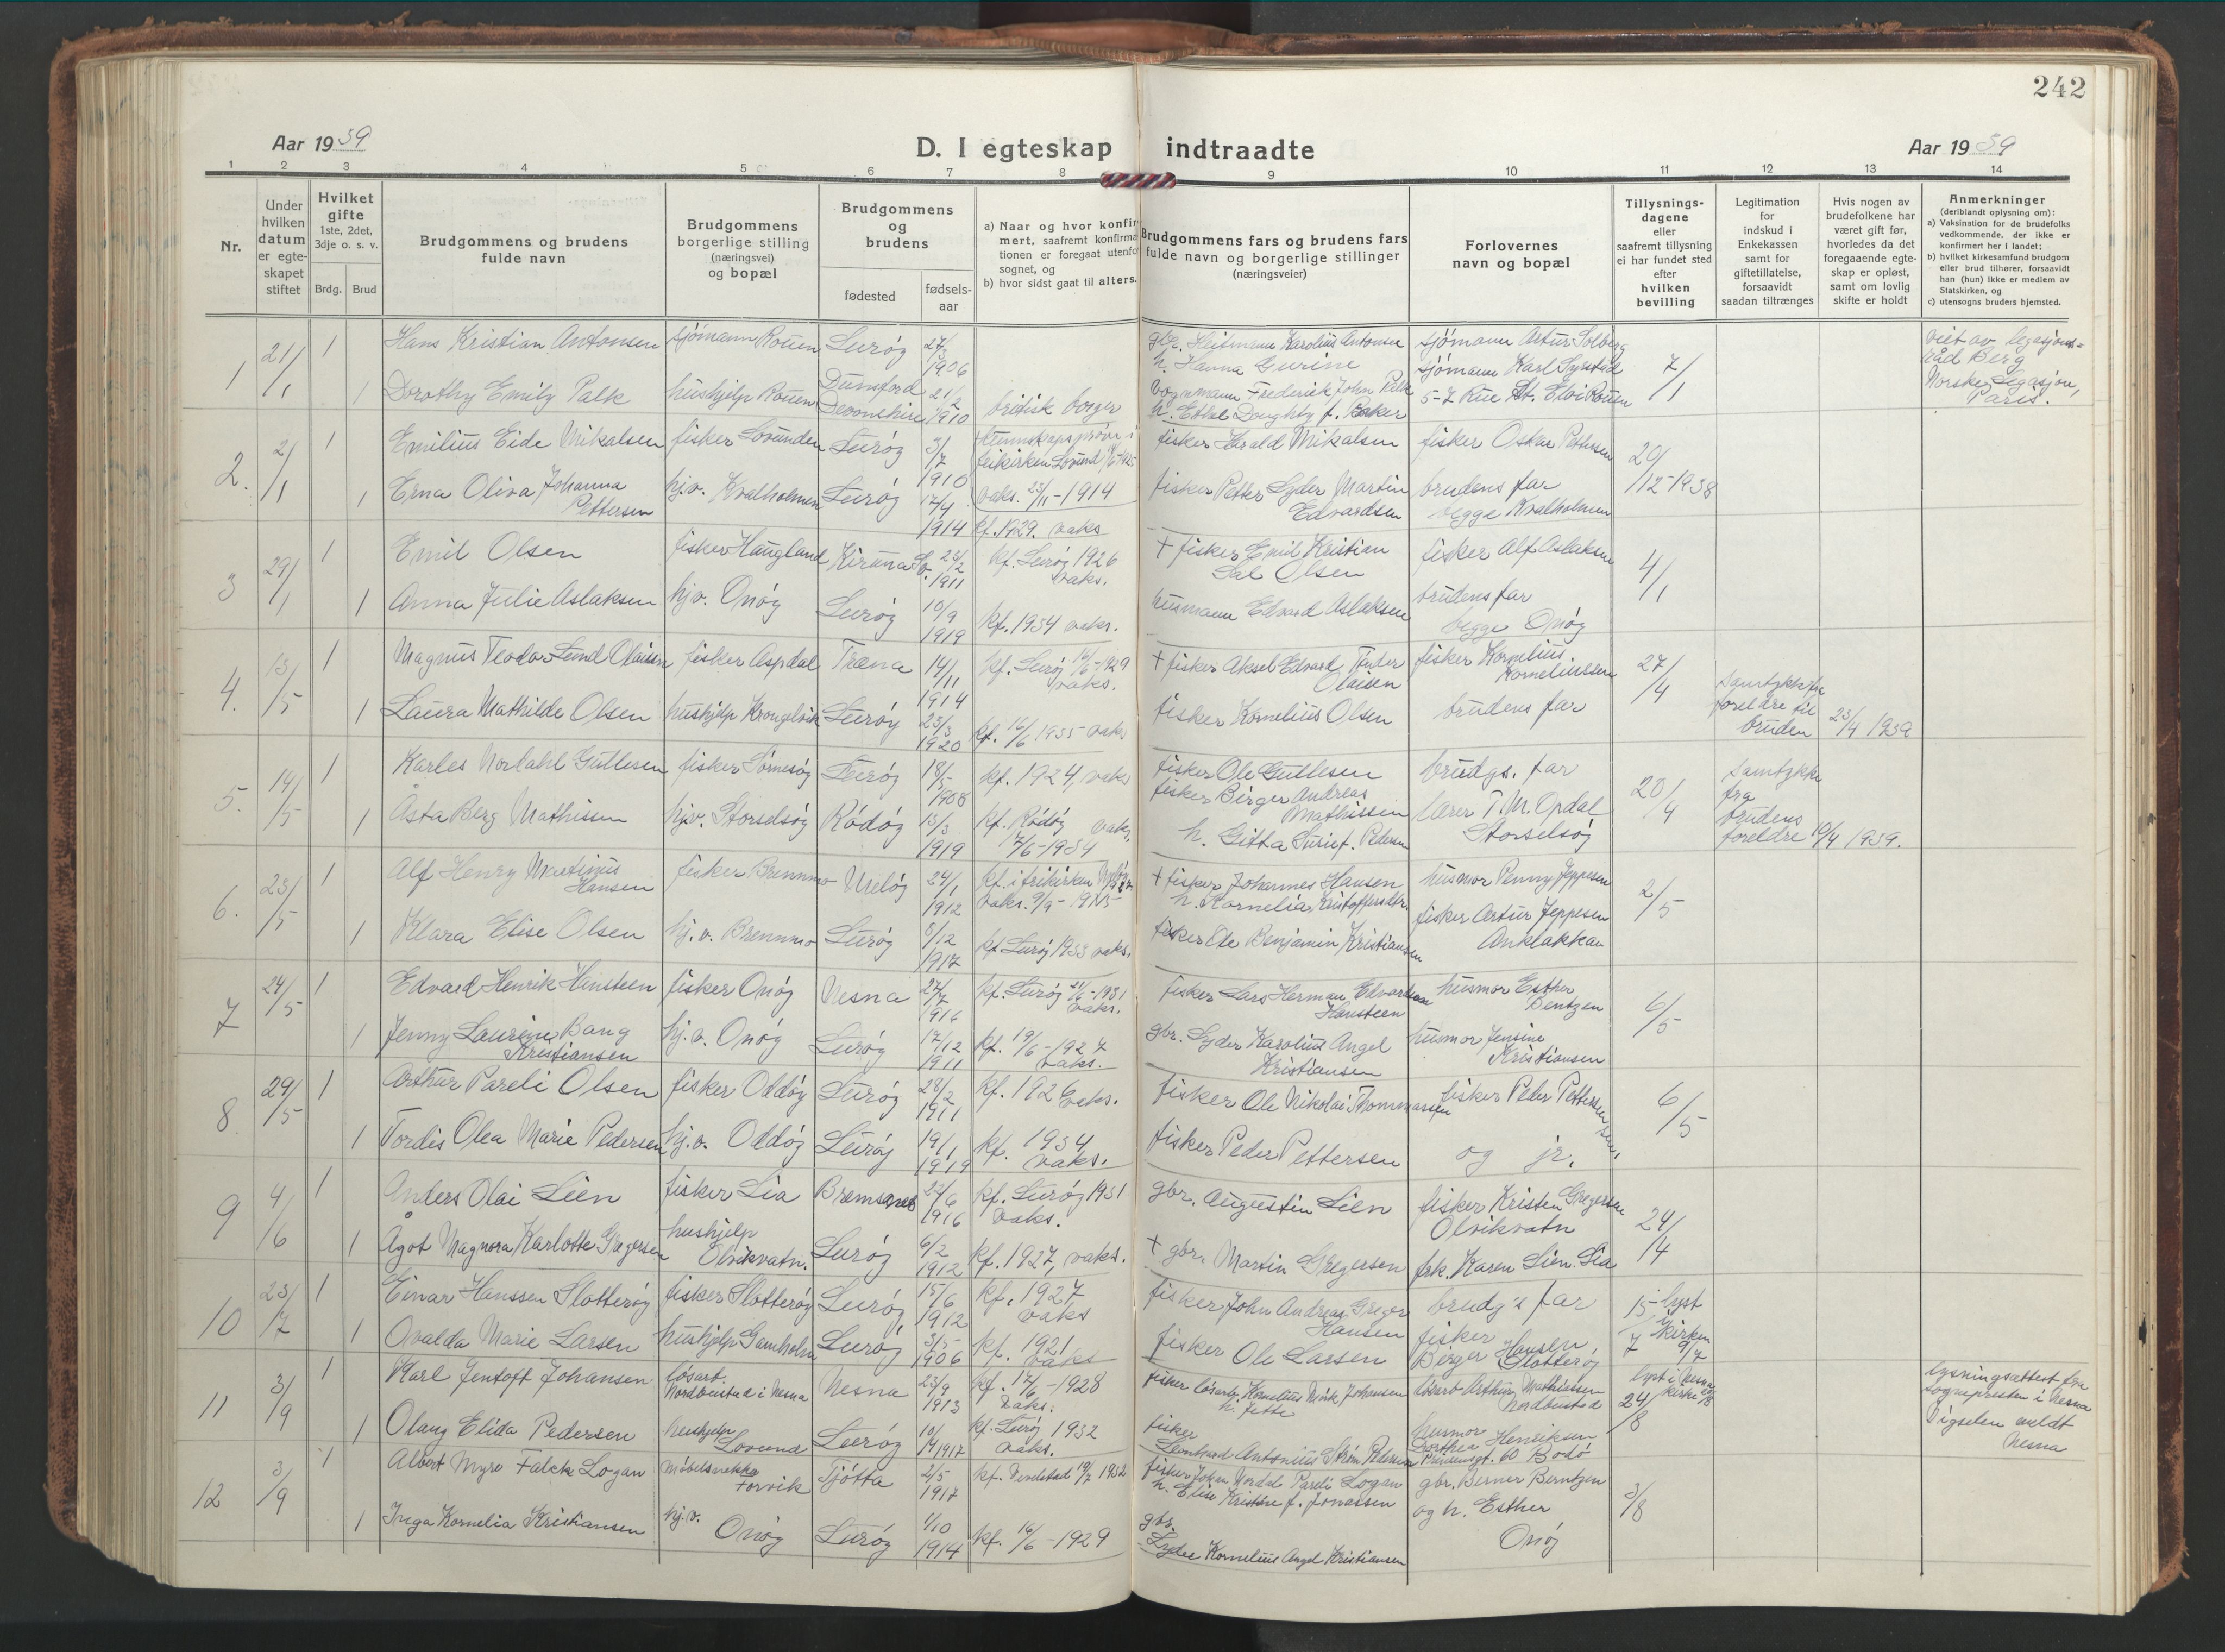 242
Aar 1939
D. I egteskap indtraadte
Aar 1939
1 2 3 4 5 6 7 8 9 10 11 12 13 14
Nr.
Under hvilken datum er egteskapet stiftet
Hvilket gifte 1ste, 2det, 3dje o. s. v.
Brdg. Brud
Brudgommens og brudens fulde navn
Brudgommens borgerlige stilling (næringsvei) og bopæl
Brudgommens og brudens
fødested
fødsels-aar
a) Naar og hvor konfirmert, saafremt konfirmationen er foregaat utenfor sognet, og
b) hvor sidst gaat til alters.
Brudgommens fars og brudens fars fulde navn og borgerlige stillinger (næringsveier)
Forlovernes navn og bopæl
Tillysnings-dagene eller saafremt tillysning ei har fundet sted efter hvilken bevilling
Legitimation for indskud i Enkekassen samt for giftetillatelse, forsaavidt saadan tiltrænges
Hvis nogen av brudefolkene har været gift før, hvorledes da det foregaaende egteskap er opløst, samt om lovlig skifte er holdt
Anmerkninger (deriblandt oplysning om):
a) Vaksination for brudefolks vedkommende, der ikke er konfirmert her i landet;
b) hvilket kirkesamfund brudgom eller brud tilhører, forsaavidt han (hun) ikke er medlem av Statskirken, og
c) utensogns bruders hjemsted.
1 21/1 1 Hans Kristian Antonsen sjømann Rouen Lurøy 27/3 1906 gbr. Heitmann Karolius Antonsen h. Hanna Gurine sjømann Artur Solberg sjømann Karl Syrstad 7/1 viet av legasjonsråd Berg Norske Legasjon, Paris.
1 Dorothy Emily Palk hushjelp Rouen Dunsford Devonshire 21/2 1910 britisk borger Vognmann Frederik John Palk h. Ethel Doughty f. Baker 5-7 Rue St. Eloi Rouen
2. 2/1 1 Emilius Eide Mikalsen fisker Lovunden Lurøy 3/7 1910 kunnskapsprøve i frikirken Lovund vaks. 23/11-1914 fisker Harald Mikalsen fisker Oskar Pettersen 20/12-1938
1 Erna Oliva Johanna Pettersen hj.v. Kvalholmen Lurøy 17/4 1914 kf. 1929. vaks fisker Petter Lyder Martin Edvardsen brudens far begge Kvalholmen
3 29/1 1 Emil Olsen fisker Haugland Kiruna Sv. 23/2 1911 kf. Lurøy 1926 vaks. + fisker Emil Kristian Sal Olsen fisker Alf Aslaksen 4/1
1 Anna Julie Aslaksen hj.v. Onøy Lurøy 10/9 1919 kf. 1934 vaks. husmann Edvard Aslaksen brudens far begge Onøy
4. 13/5 1 Magnus Teodor Lund Olaisen fisker Aspdal Træna 14/11 1914 kf. Lurøy 16/6-1929 vaks. + fisker Aksel Edvard Olaisen fisker Kornelius Korneliussen 27/4
1 Laura Mathilde Olsen hushjelp Krongelvik Lurøy 23/3 1920 kf. 16/6 1935 vaks fisker Kornelius Olsen brudens far samtykke fra foreldre til bruden 23/4 1939
5. 14/5 1 Karles Nordahl Gullesen fisker Sørnesøy Lurøy 18/5 1908 kf. 1924, vaks fisker Ole Gullesen brudgs. far 20/4
1 Åsta Berg Mathisen hj.v. Storselsøy Rødøy 13/3 1919 kf. Rødøy 17/6-1934 vaks. fisker Birger Andreas Mathissen h. Gitta f. Pedersen lærer T. M. Opdal Storselsøy samtykke fra brudens foreldre 19/4 1939.
6. 23/5 1 Alf Henry Martinius Hansen fisker Brennmo Meløy 24/1 1912 kf. i frikirken vaks. 9/9-1915 + fisker Johannes Hansen h. Kornelia Kristoffersdtr. husmor Penny Jeppesen 2/5
1 Klara Elise Olsen hj.v. Brennmo Lurøy 8/12 1917 kf. Lurøy 1933 vaks. fisker Ole Benjamin Kristiansen fisker Artur Jeppesen Anklakkan
7 24/5 1 Edvard Henrik Hansteen fisker Onøy Nesna 27/7 1916 kf. Lurøy 21/6-1931 vaks. fisker Lars Herman Edvardsen Hansteen husmor Esther Bentzen 6/5
1 Jenny Laurine Bang Kristiansen hj.v. Onøy Lurøy 17/12 1911 kf. 19/6-1927 vaks. gbr. Lyder Karolius Angel Kristiansen husmor Jensine Kristiansen
8 29/5 1 Arthur Pareli Olsen fisker Oddøy Lurøy 28/2 1911 kf. 1926 vaks. fisker Ole Nikolai Thommassen fisker Peder Pettersen sen. 6/5
1 Tordis Olea Marie Pedersen hj.v. Oddøy Lurøy 19/1 1919 kf. 1934 vaks. fisker Peder Pettersen og jr.
9 4/6 1 Anders Olai Lien fisker Lia Bremsnes 22/6 1916 kf. Lurøy 1931 vaks. gbr. Augustin Lien fisker Kristen Gregersen Olvikvatn 24/4
1 Ågot Magnora Karlotte Gregersen hushjelp Olvikvatn. Lurøy 6/2 1912 kf. 1927, vaks. + gbr. Martin Gregersen frk. Karen Lien Lia
10 23/7 1 Einar Hanssen Slotterøy fisker Slotterøy Lurøy 15/6 1912 kf. 1927 vaks fisker John Andreas Greger Hansen brudg's far 15/7 lyst i kirken 9/7
1 Ovalda Marie Larsen hushjelp Gamholm Lurøy 3/5 1906 kf. 1921 vaks fisker Ole Larsen fisker Birger Hansen Slotterøy
11 3/9 1 Karl Jentoft Johansen løsarb. Nordbustad i Nesna Nesna 23/9 1913 kf. 17/6-1928 vaks. fisker løsarb. Kornelius Mørk Johansen h. Jette løsarb Arthur Mathiassen Nordbustad 24/8 lyst i Nesna kirke lysningsattest fra sognepresten i Nesna Vigselen meldt Nesna
1 Olaug Elida Pedersen hushjelp Lovund Lurøy 10/4 1917 kf. Lurøy 1932 vaks. fisker Leonhard Antonius Strøm Pedersen husmor Dorthea Henriksen 60 Bodø
12 3/9 1 Albert Myro Falck Logan møbelsnekker Forvik Tjøtta 2/5 1917 kf. Vevelstad 19/7 1932 fisker Johan Nordal Pareli Logan h. Elise Kristine f. Jonassen gbr. Berner Berntzen og h. Esther 3/8
1 Inga Kornelia Kristiansen hj.v. Onøy Lurøy 1/10 1914 kf. 16/6-1929 gbr. Lyder Kornelius Angel Kristiansen Onøy